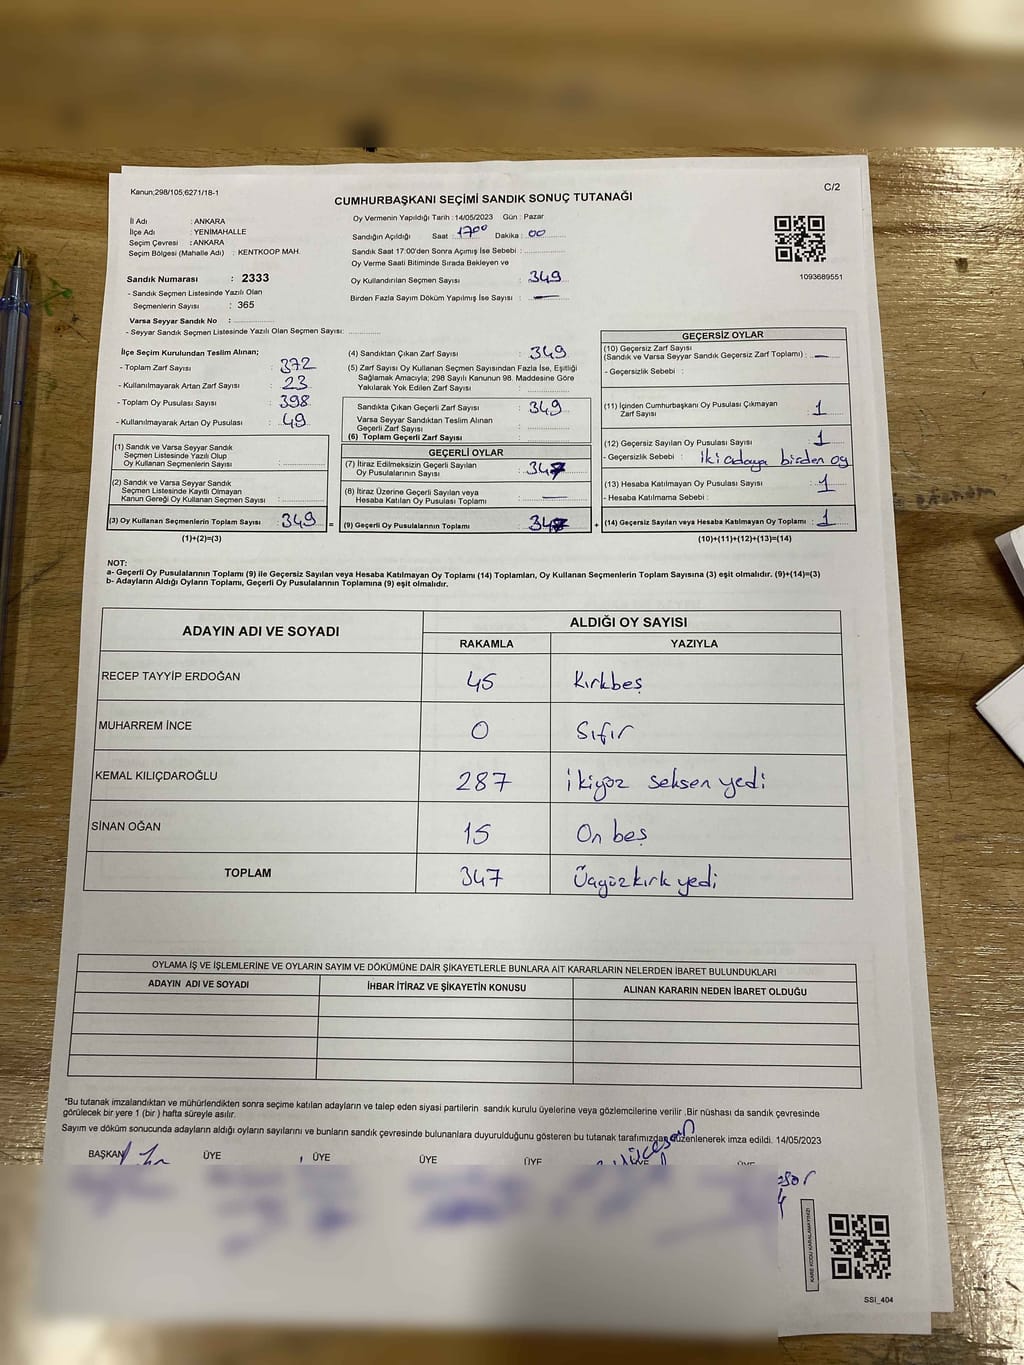 Kanun;298/105,6271/18-1
C/2
CUMHURBAŞKANI SEÇİMİ SANDIK SONUÇ TUTANAĞI
İl Adı : ANKARA
İlçe Adı : YENİMAHALLE
Seçim Çevresi : ANKARA
Seçim Bölgesi (Mahalle Adı) : KENTKOOP MAH.
Sandık Numarası : 2333
- Sandık Seçmen Listesinde Yazılı Olan
Seçmenlerin Sayısı : 365
Varsa Seyyar Sandık No :
- Seyyar Sandık Seçmen Listesinde Yazılı Olan Seçmen Sayısı:
Oy Vermenin Yapıldığı Tarih : 14/05/2023 Gün : Pazar
Sandığın Açıldığı Saat : 17⁰⁰ Dakika : 00
Sandık Saat 17:00'den Sonra Açımış İse Sebebi :
Oy Verme Saati Bitiminde Sırada Bekleyen ve
Oy Kullandırılan Seçmen Sayısı : 349
Birden Fazla Sayım Döküm Yapılmış İse Sayısı : —
1093689551
İlçe Seçim Kurulundan Teslim Alınan;
- Toplam Zarf Sayısı : 372
- Kullanılmayarak Artan Zarf Sayısı : 23
- Toplam Oy Pusulası Sayısı : 398
- Kullanılmayarak Artan Oy Pusulası : 49
(1) Sandık ve Varsa Seyyar Sandık
Seçmen Listesinde Yazılı Olup
Oy Kullanan Seçmenlerin Sayısı :
(2) Sandık ve Varsa Seyyar Sandık
Seçmen Listesinde Kayıtlı Olmayan
Kanun Gereği Oy Kullanan Seçmen Sayısı :
(3) Oy Kullanan Seçmenlerin Toplam Sayısı : 349 =
(1)+(2)=(3)
(4) Sandıktan Çıkan Zarf Sayısı : 349
(5) Zarf Sayısı Oy Kullanan Seçmen Sayısından Fazla İse, Eşitliği
Sağlamak Amacıyla; 298 Sayılı Kanunun 98. Maddesine Göre
Yakılarak Yok Edilen Zarf Sayısı :
Sandıkta Çıkan Geçerli Zarf Sayısı : 349
Varsa Seyyar Sandıktan Teslim Alınan
Geçerli Zarf Sayısı :
(6) Toplam Geçerli Zarf Sayısı :
GEÇERLİ OYLAR
(7) İtiraz Edilmeksizin Geçerli Sayılan
Oy Pusulalarının Sayısı : 347
(8) İtiraz Üzerine Geçerli Sayılan veya
Hesaba Katılan Oy Pusulası Toplamı : —
(9) Geçerli Oy Pusulalarının Toplamı : 347 +
GEÇERSİZ OYLAR
(10) Geçersiz Zarf Sayısı
(Sandık ve Varsa Seyyar Sandık Geçersiz Zarf Toplamı) : —
- Geçersizlik Sebebi :
(11) İçinden Cumhurbaşkanı Oy Pusulası Çıkmayan
Zarf Sayısı : 1
(12) Geçersiz Sayılan Oy Pusulası Sayısı : 1
- Geçersizlik Sebebi : iki adaya birden oy
(13) Hesaba Katılmayan Oy Pusulası Sayısı : 1
- Hesaba Katılmama Sebebi :
(14) Geçersiz Sayılan veya Hesaba Katılmayan Oy Toplamı : 1
(10)+(11)+(12)+(13)=(14)
NOT:
a- Geçerli Oy Pusulalarının Toplamı (9) ile Geçersiz Sayılan veya Hesaba Katılmayan Oy Toplamı (14) Toplamları, Oy Kullanan Seçmenlerin Toplam Sayısına (3) eşit olmalıdır. (9)+(14)=(3)
b- Adayların Aldığı Oyların Toplamı, Geçerli Oy Pusulalarının Toplamına (9) eşit olmalıdır.
ADAYIN ADI VE SOYADI
ALDIĞI OY SAYISI
RAKAMLA YAZIYLA
RECEP TAYYİP ERDOĞAN 45 Kırkbeş
MUHARREM İNCE 0 Sıfır
KEMAL KILIÇDAROĞLU 287 ikiyüz seksen yedi
SİNAN OĞAN 15 On beş
TOPLAM 347 Üçyüzkırk yedi
OYLAMA İŞ VE İŞLEMLERİNE VE OYLARIN SAYIM VE DÖKÜMÜNE DAİR ŞİKAYETLERLE BUNLARA AİT KARARLARIN NELERDEN İBARET BULUNDUKLARI
ADAYIN ADI VE SOYADI İHBAR İTİRAZ VE ŞİKAYETİN KONUSU ALINAN KARARIN NEDEN İBARET OLDUĞU
*Bu tutanak imzalandıktan ve mühürlendikten sonra seçime katılan adayların ve talep eden siyasi partilerin sandık kurulu üyelerine veya gözlemcilerine verilir .Bir nüshası da sandık çevresinde
görülecek bir yere 1 (bir ) hafta süreyle asılır.
Sayım ve döküm sonucunda adayların aldığı oyların sayılarını ve bunların sandık çevresinde bulunanlara duyurulduğunu gösteren bu tutanak tarafımızdan düzenlenerek imza edildi. 14/05/2023
BAŞKAN ÜYE ÜYE ÜYE ÜYE ÜYE ÜYE
KARE KODU KARALAMAYINIZ!
SSI_404